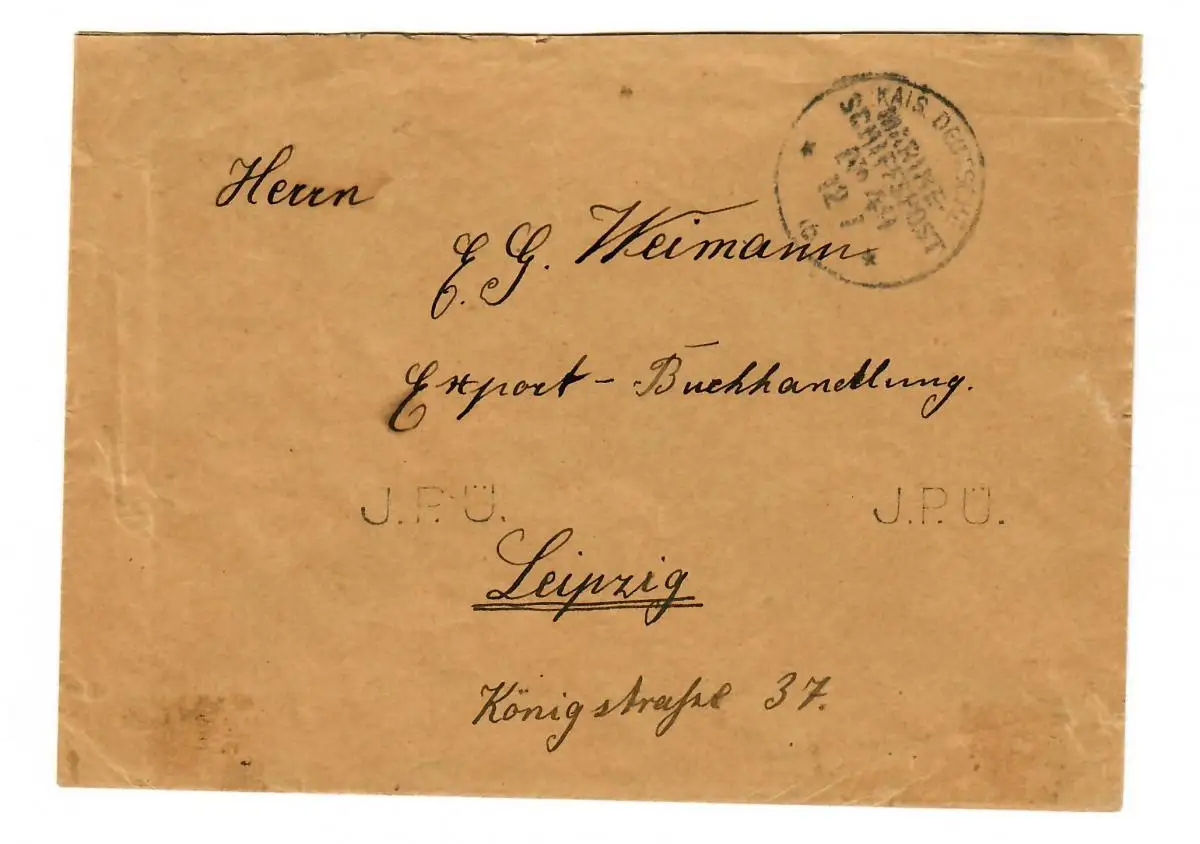 KAIS. DEUTSCHE
MARINE-
SCHIFFSPOST
No 49
12 7
Herrn
E. G. Weimann
Export - Buchhandlung.
J.P.Ü. J.P.Ü.
Leipzig
Königstraße 37.